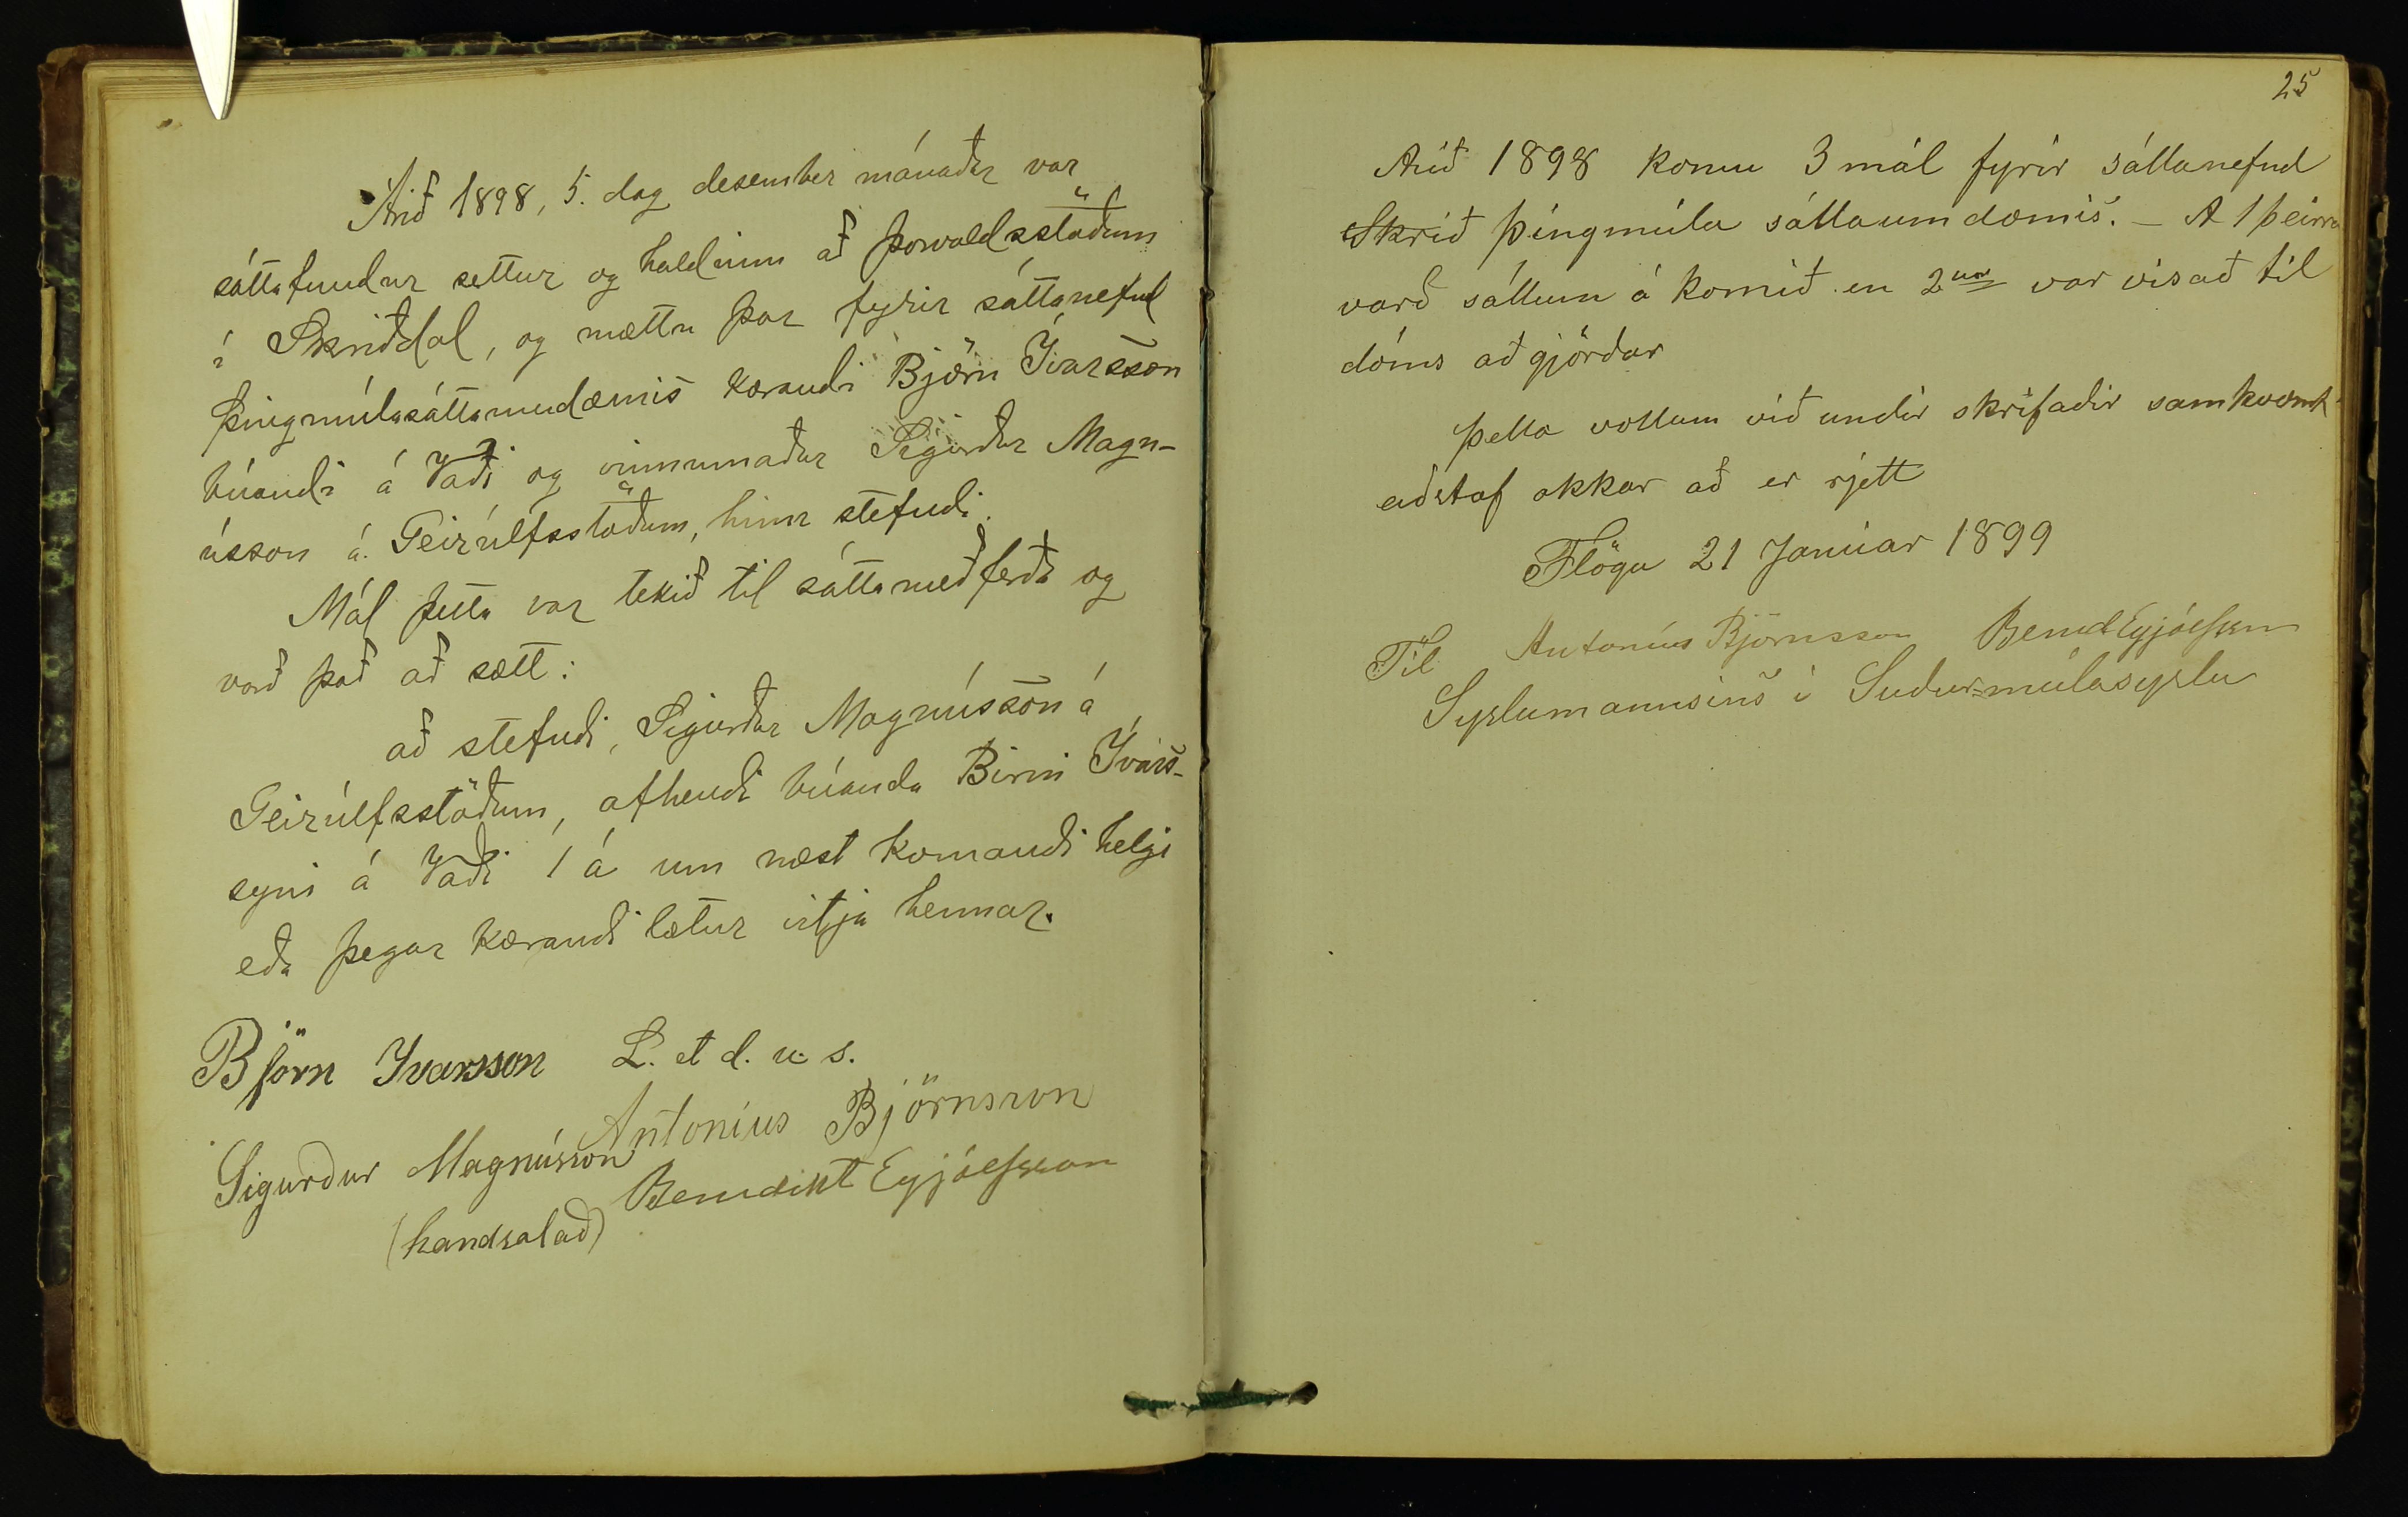 Árið 1898, 5. dag desember mánaðar var
sáttafundur settur og haldinn að Þorvaldsstöðum
í Skriðdal, og mættu þar fyrir sáttanefnd
Þingmúlasáttaumdæmis kærandi Björn Ívarsson
búandi á Vaði og vinnumaður Sigurður Magn-
ússon á Geirúlfsstöðum, hinn stefndi.
Mál þetta var tekið til sáttameðferða og
varð það að sætt:
að stefndi, Sigurður Magnússon á
Geirúlfsstöðum, afhendi búanda Birni Ívars-
syni á Vaði 1 á um næst komandi helgi
eða þegar kærandi lætur vitja hennar.
Björn Ivarsson L. et d. u. s.
Antoníus Björnsson
Sigurður Magnússon
Benedikt Eyjólfsson
(handsalað)
25
Arið 1898 komu 3 mál fyrir sáttanefnd
Skrið þingmúla sáttaumdæmis. – A 1 þeirra
varð sáttum á komið en 2ur var visað til
dóms aðgjörðar
Þetta vottum við undir skrifaðir samkvæmt
eiðstaf okkar að er rjett
Flögu 21 Janúar 1899
Antoníus Björnsson Bened Eyjólfsson
Til
Syslumannsins i Suður-múlasyslu